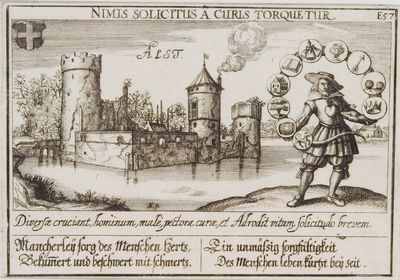 NIMIS SOLICITUS A CURIS TORQUETUR.
E57
ALST.
Diversæ cruciant, hominum, male, pectora curæ, et Abrodit vitam solicitudo brevem.
Mancherleÿ sorg des Menschen Herts,
Bekümert und beschwert mit schmerts.
Ein unmässig sorgfältigkeit
Des Menschen leben kürtzt beÿ zeit.